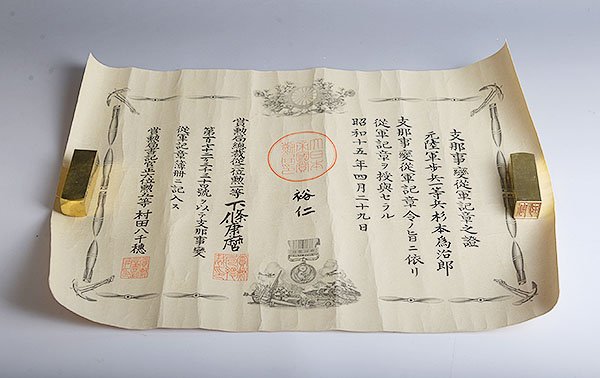 支那事變從軍記章之證
元陸軍步兵一等兵杉本為治郎
支那事變從軍記章令ノ旨ニ依リ
從軍記章ヲ授與セラル
昭和十五年四月二十九日
裕仁
賞勲局總裁從三位勲二等下條康麿
號ヲ以テ支那事變
從軍記章簿冊ニ記入ス
賞勲局書記官村田八千穗